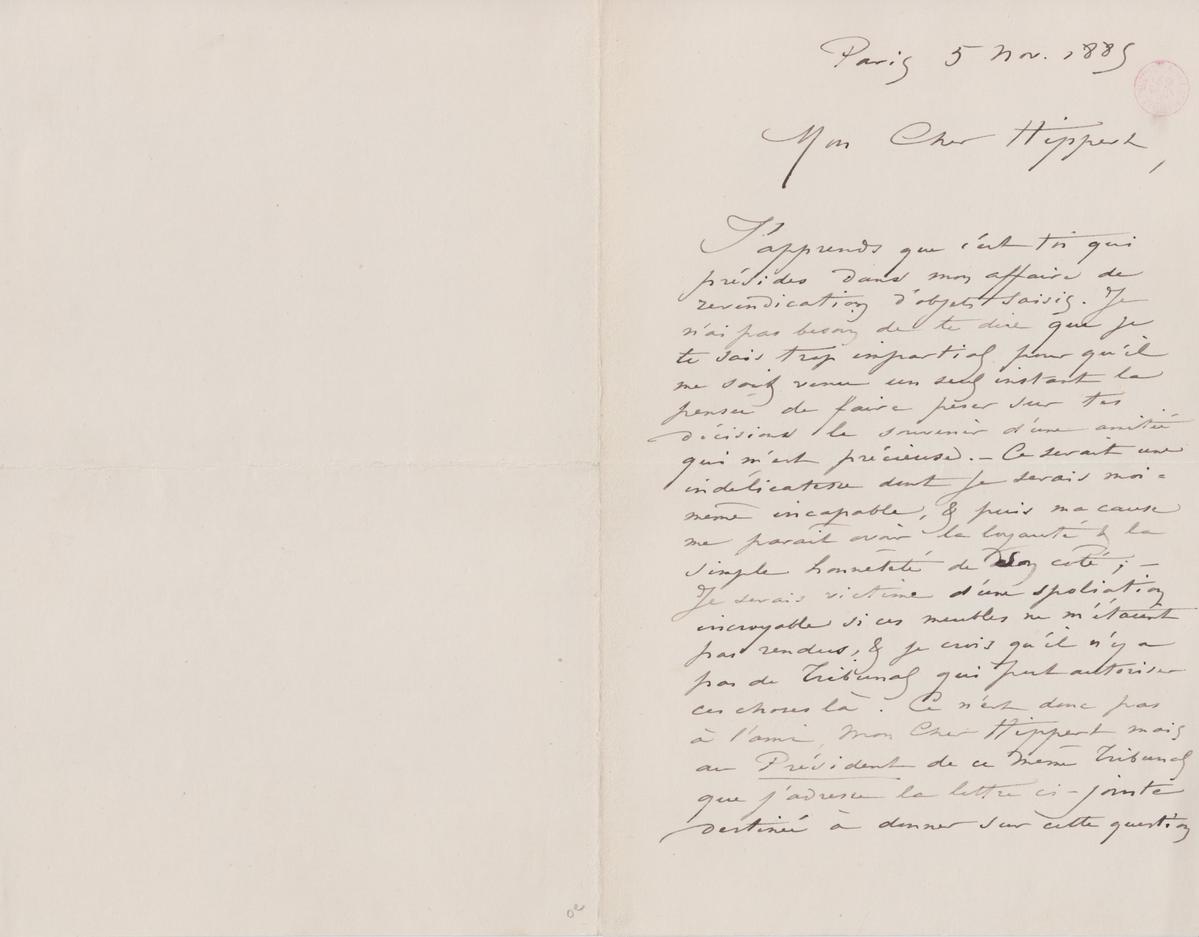 Paris 5 Nov. 1885
Mon Cher Hippert,
J'apprends que c'est toi qui
présides dans mon affaire de
revendication d'objets saisis. Je
n'ai pas besoin de te dire que je
te sais trop impartial pour qu'il
me soit venu un seul instant la
pensée de faire peser sur tes
décisions le souvenir d'une amitié
qui m'est précieuse. – Ce serait une
indélicatesse dont je serais moi =
même incapable, & puis ma cause
me parait avoir la loyauté & la
simple honnêteté de son coté ; –
Je serais victime d'une spoliation
incroyable si ces meubles ne m'étaient
pas rendus, & je crois qu'il n'y a
pas de Tribunal qui peut autoriser
ces choses là. Ce n'est donc pas
à l'ami, Mon Cher Hippert mais
au Président de ce même Tribunal
que j'adresse la lettre ci-jointe
destinée à donner sur cette question